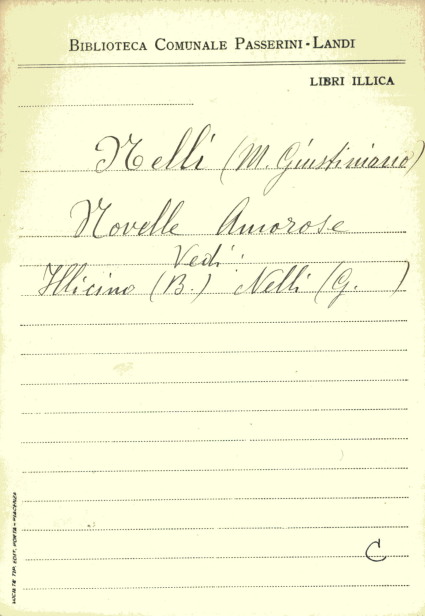 BIBLIOTECA COMUNALE PASSERINI-LANDI
LIBRI ILLICA
Nelli (M. Giustiniano)
Novelle Amorose
Vedi:
Illicino (B.) Nelli (G. )
C